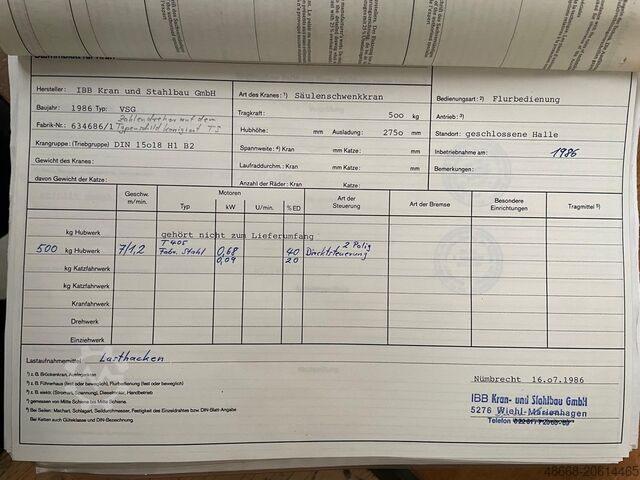 Stammblatt für Kran
Hersteller: IBB Kran und Stahlbau GmbH
Art des Kranes: ¹) Säulenschwenkkran
Bedienungsart: ²) Flurbedienung
Baujahr: 1986 Typ: VSG
Tragkraft: 500 kg
Antrieb: ³)
Zahlendreher auf dem
Fabrik-Nr.: 634686/1 Typenschild korrigiert TS
Hubhöhe: mm Ausladung: 275o mm
Standort: geschlossene Halle
Krangruppe: (Triebgruppe) DIN 15o18 H1 B2
Spannweite: ⁴) Kran mm Katze: mm
Inbetriebnahme am: 1986
Gewicht des Kranes:
Laufraddurchm.: Kran mm Katze: mm
Bemerkungen:
davon Gewicht der Katze:
Anzahl der Räder: Kran Katze:
Geschw. m/min.
Motoren
Typ kW U/min. % ED
Art der Steuerung
Art der Bremse
Besondere Einrichtungen
Tragmittel ⁵)
kg Hubwerk gehört nicht zum Lieferumfang
T 405 2 Polig
500 kg Hubwerk 7/1,2 Fabr. Stahl 0,68 40 Direktsteuerung
0,09 20
kg Katzfahrwerk
kg Katzfahrwerk
Kranfahrwerk
Drehwerk
Einziehwerk
Lastaufnahmemittel Lasthacken
¹) z. B. Brückenkran, Auslegerkran
²) z. B. Führerhaus (fest oder beweglich), Flurbedienung (fest oder beweglich)
³) z. B. elektr. (Stromart, Spannung), Dieselmotor, Handbetrieb
⁴) gemessen von Mitte Schiene bis Mitte Schiene.
⁵) Bei Seilen: Machart, Schlagart, Seildurchmesser, Festigkeit des Einzeldrahtes bzw. DIN-Blatt-Angabe
Bei Ketten auch Güteklasse und DIN-Bezeichnung.
Nümbrecht 16.o7.1986
IBB Kran- und Stahlbau GmbH
5276 Wiehl-Marienhagen
Telefon
48668-20614465